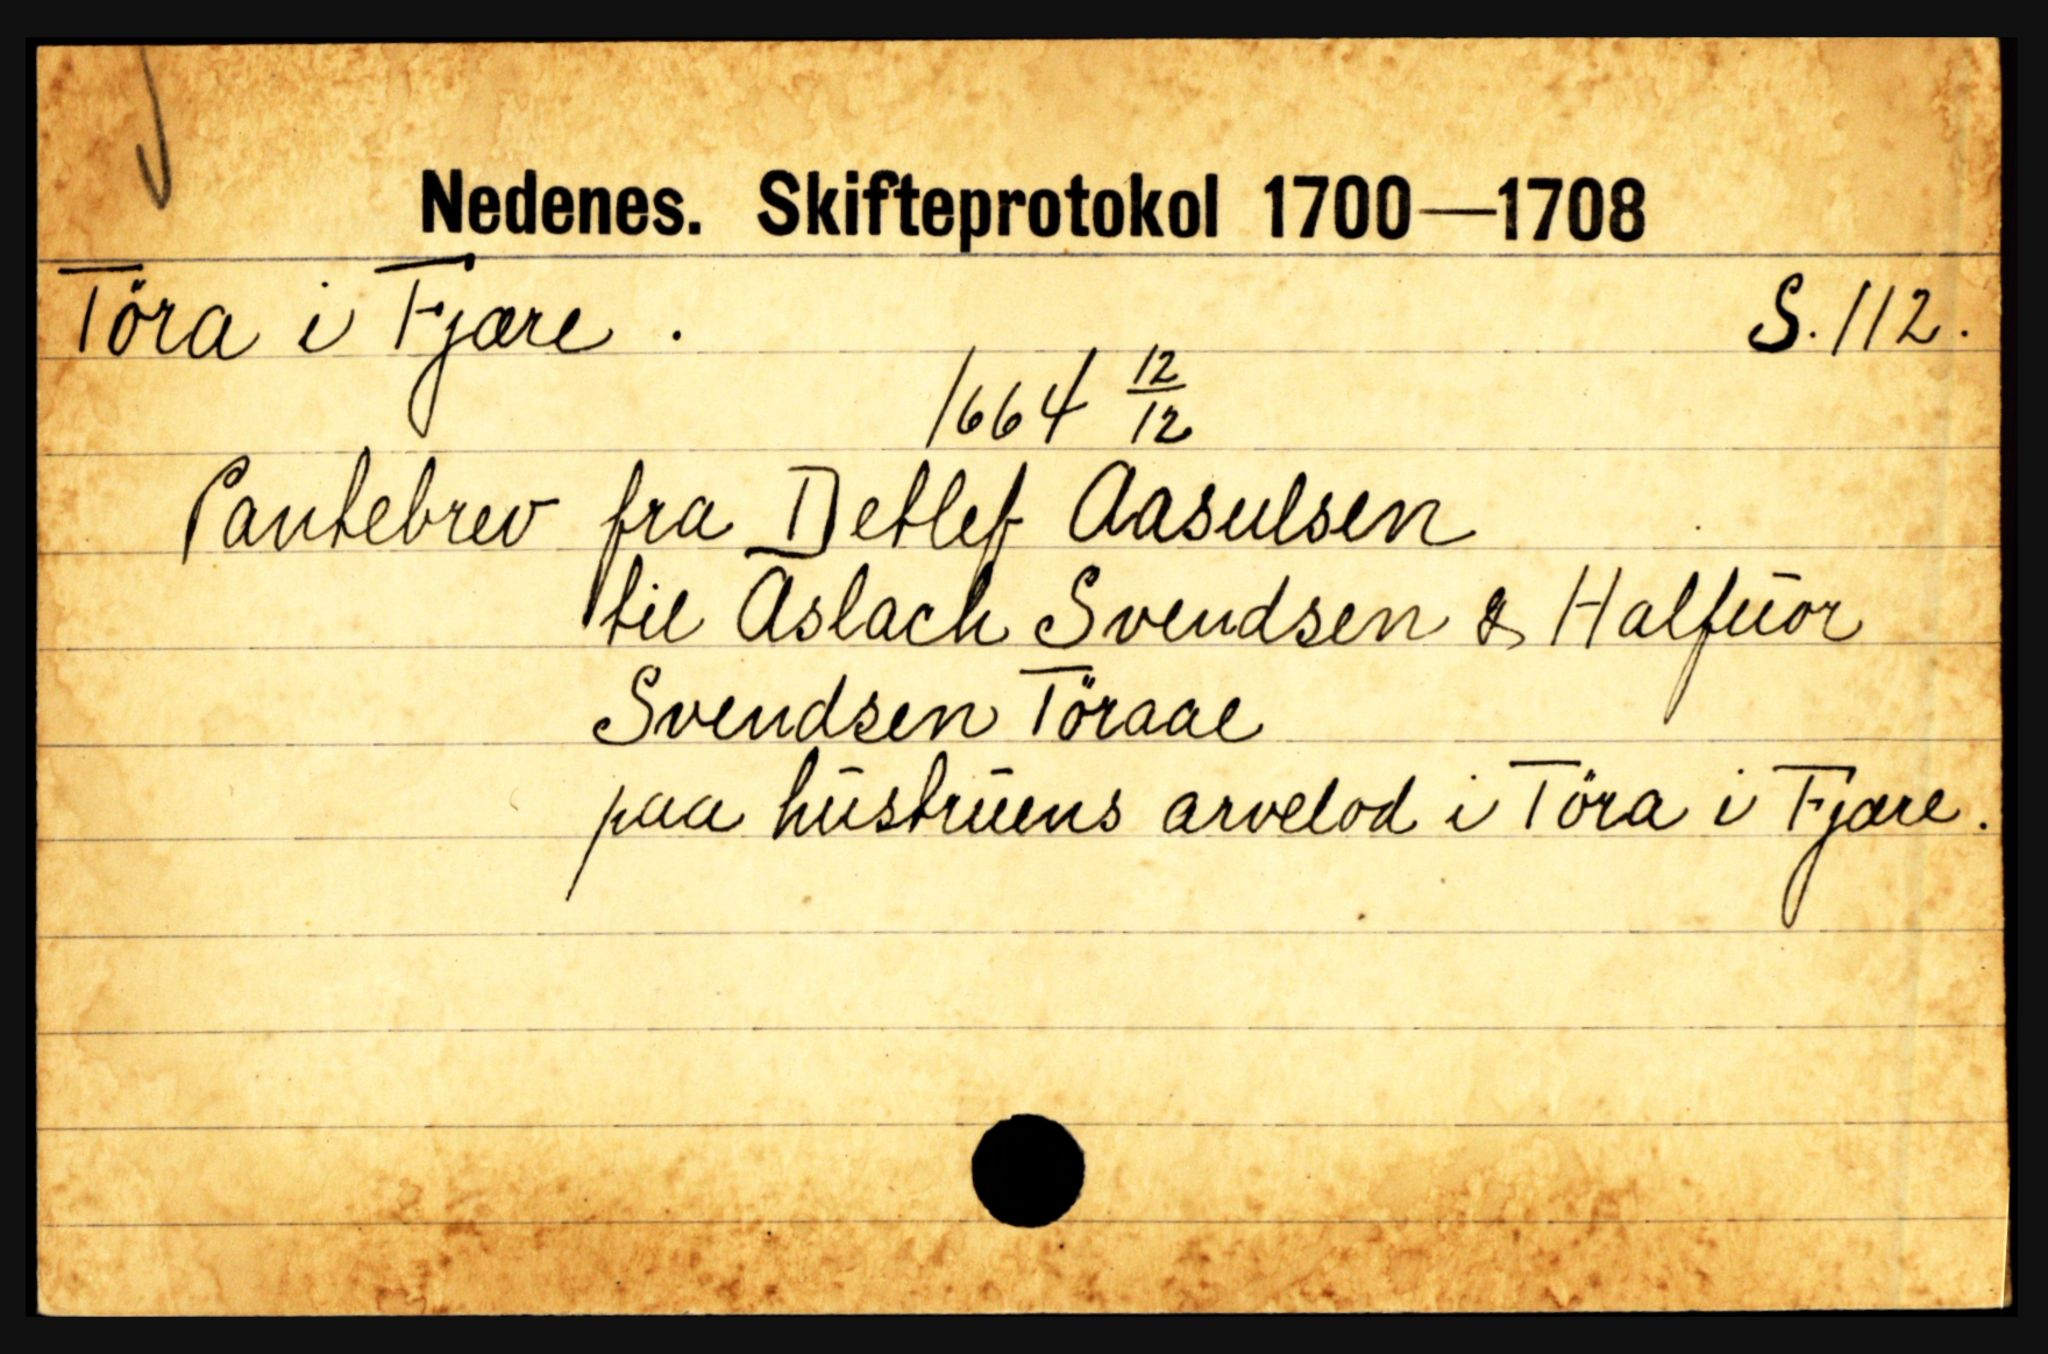 Nedenes. Skifteprotokol 1700—1708
Töra i Fjære. S. 112.
1664 12/12
Pantebrev fra Detlef Aasulsen
til Aslach Svendsen & Halfuor
Svendsen Töraae
paa hustruens arvelod i Töra i Fjære.